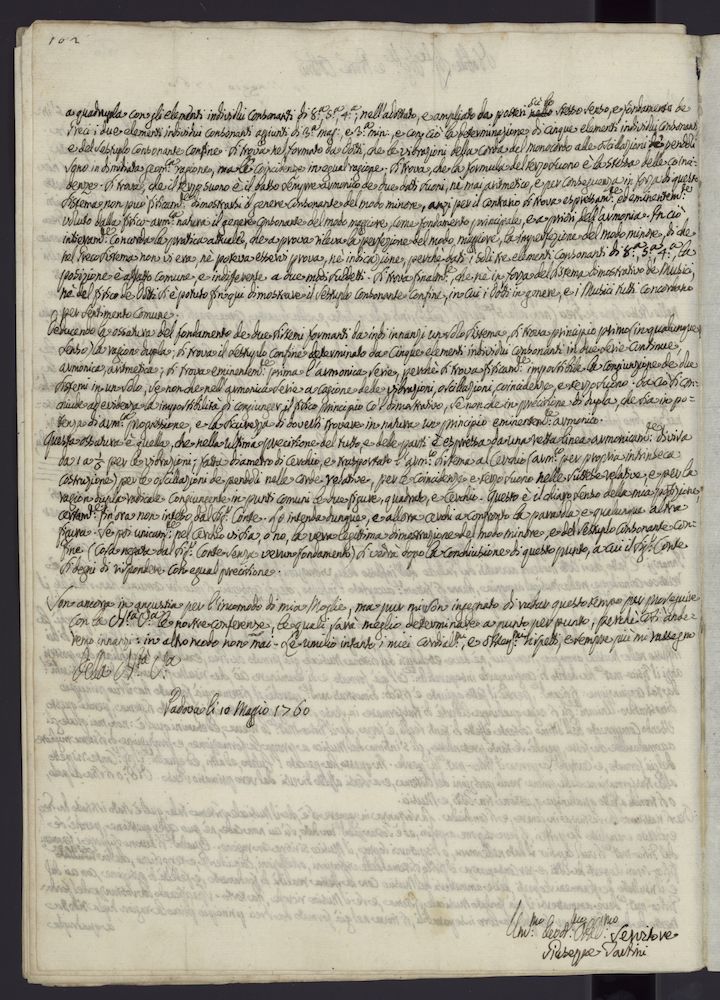 102
a quadrupla con gli elementi individui consonanti di 8.ª 5.ª 4.ª; nell'adottato, e ampliato da posteri sullo stesso senso, e fondamento de
Greci i due elementi individui consonanti aggiunti di 3.ª mag.e e 3.ª min.e, e con ciò la determinazione di cinque elementi individui consonanti
e del sestuplo consonante confine. Si trova nel formato da Dotti, che le vibrazioni della corda del monocordo alle oscillazioni de pendoli
sono in dimidiata segm.ª ragione, ma le coincidenze in egual ragione; si trova, che la formula del terzo suono è la stessa delle coinci
denze. Si trova, che il terzo suono è il basso sempre armonico de due dati suoni, né mai aritmetico, e per conseguenza in forza di questo
sistema non può fisicam.te dimostrarsi il genere consonante del modo minore, anzi per il contrario si trova espressam.te, ed eminentem.te
voluto dalla fisico-arm.ca natura il genere consonante del modo maggiore, come fondamento principale, e a priori dell'armonia. In ciò
intieram.te concorda la pratica attuale, che a prova rileva la perfezione del modo maggiore, la imperfezione del modo minore, di che
nel Greco sistema non vi era, né poteva esservi prova, né indicazione, perché dati i soli tre elementi consonanti di 8.ª 5.ª 4.ª, la
posizione è affatto comune, e indifferente a due modi suddetti. Si trova finalm.te, che né in forza del sistema dimostrativo de Musici,
né del fisico de Dotti si è potuto fin qui dimostrare il sestuplo consonante confine, in cui i Dotti in genere, e i Musici tutti concordano
per sentimento comune.
Deducendo la ossatura del fondamento de due sistemi formanti da indi innanzi un solo sistema, si trova principio primo (in qualunque
senso) la ragion dupla; si trova il sestuplo confine determinato da cinque elementi individui consonanti in due serie continue,
armonica, aritmetica; si trova eminentem.te prima l'armonica serie, perché si trova fisicam.te impossibile la congiunzione de due
sistemi in un solo, se non che nell'armonica serie a cagione delle vibrazioni, oscillazioni, coincidenze, e terzo suono. Da ciò si con-
chiude ad evidenza la impossibilità di congiunger il fisico principio col dimostrativo, se non che in precisione di dupla, che sia in po-
tenza di arm.ca proporzione, e la sicurezza di doversi trovare in natura un principio eminentem.te armonico.
Questa ossatura è quella, che nella ultima precisione del tutto, e delle parti è espressa da una retta linea armonicam.te divisa
da 1 a ⅙ per le vibrazioni; fatta diametro di cerchio, e trasportato l'arm.co sistema al cerchio (arm.co per propria intrinseca
costruzione) per le oscillazioni de pendoli nelle corde relative, per le coincidenze, e terzo suono nelle suddette relative, e per la
ragion dupla radicale congiungente in punti comuni le due figure, quadrato, e cerchio. Questo è il chiaro senso della mia proposizione,
certam.te fin'ora non inteso dal Sig.r Conte. Lo intenda dunque, e allora cerchi a confronto la parabola, e qualunque altra
figura. Se poi unicam.te nel cerchio vi sia, o no, la vera legittima dimostrazione del modo minore, e del sestuplo consonante con-
fine (cosa negata dal Sig.r Conte senza verun fondamento) si vedrà dopo la conclusione di questo punto, a cui il Sig.r Conte
si degni di rispondere con egual precisione.
Son ancora in angustia per l'incomodo di mia Moglie, ma pur mi son ingegnato di rubar questo tempo per proseguire
con la S.ria V.ra le nostre conferenze, le quali sarà meglio determinare a punto per punto, perché così ande-
remo innanzi: in altro modo non mai. Le umilio intanto i miei cordial.mi, e ossequ.mi rispetti, e sempre più mi rassegno
Della S.ria V.ra
Padova li 10 Maggio 1760
Um.mo Devot.mo Obb.mo Servitore
Giuseppe Tartini